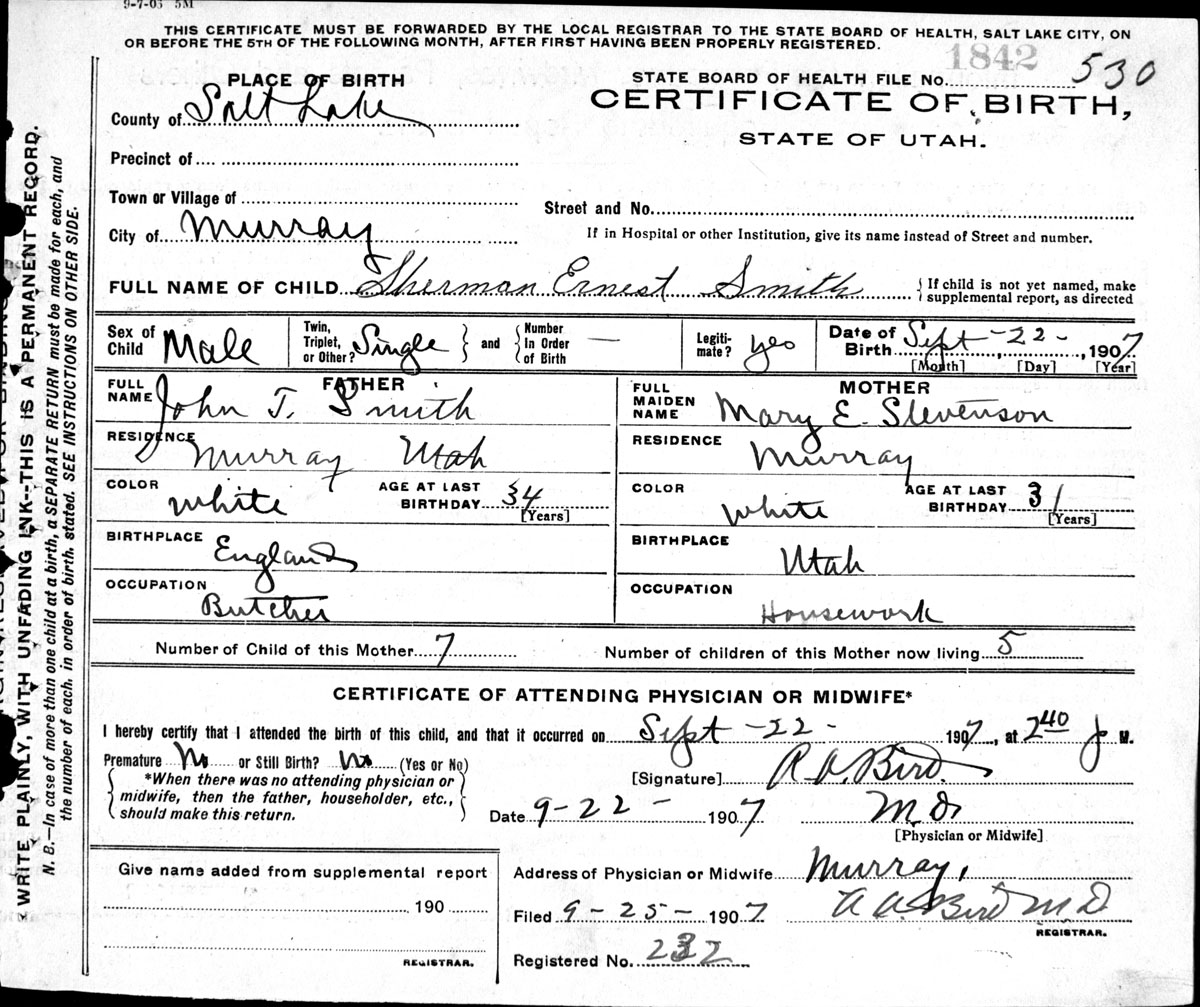 9-7-05 5M
THIS CERTIFICATE MUST BE FORWARDED BY THE LOCAL REGISTRAR TO THE STATE BOARD OF HEALTH, SALT LAKE CITY, ON
OR BEFORE THE 5TH OF THE FOLLOWING MONTH, AFTER FIRST HAVING BEEN PROPERLY REGISTERED.
1842
PLACE OF BIRTH
STATE BOARD OF HEALTH FILE No. 530
County of Salt Lake
CERTIFICATE OF BIRTH,
STATE OF UTAH.
Precinct of
Town or Village of
Street and No.
City of Murray
If in Hospital or other Institution, give its name instead of Street and number.
FULL NAME OF CHILD Sherman Ernest Smith { If child is not yet named, make
supplemental report, as directed
Sex of Child Male
Twin, Triplet, or Other? Single } and { Number In Order of Birth —
Legiti-mate? yes
Date of Birth Sept - 22 -, 1907
[Month] [Day] [Year]
FATHER
FULL NAME John T. Smith
RESIDENCE Murray Utah
COLOR White AGE AT LAST BIRTHDAY 34
[Years]
BIRTHPLACE England
OCCUPATION Butcher
MOTHER
FULL MAIDEN NAME Mary E. Stevenson
RESIDENCE Murray
COLOR White AGE AT LAST BIRTHDAY 31
[Years]
BIRTHPLACE Utah
OCCUPATION Housework
Number of Child of this Mother 7 Number of children of this Mother now living 5
CERTIFICATE OF ATTENDING PHYSICIAN OR MIDWIFE*
I hereby certify that I attended the birth of this child, and that it occurred on Sept - 22 - 1907, at 2 40 M.
Premature No or Still Birth? No (Yes or No)
*When there was no attending physician or
midwife, then the father, householder, etc.,
should make this return.
[Signature] Bird.
Date 9-22- 1907 M.D.
[Physician or Midwife]
Give name added from supplemental report
190
REGISTRAR.
Address of Physician or Midwife Murray,
Filed 9-25- 1907 Bird M D
REGISTRAR.
Registered No. 232
WRITE PLAINLY, WITH UNFADING INK--THIS IS A PERMANENT RECORD.
N. B.—In case of more than one child at a birth, a SEPARATE RETURN must be made for each, and
the number of each, in order of birth, stated. SEE INSTRUCTIONS ON OTHER SIDE.